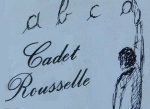 a b c d
Cadet
Rousselle